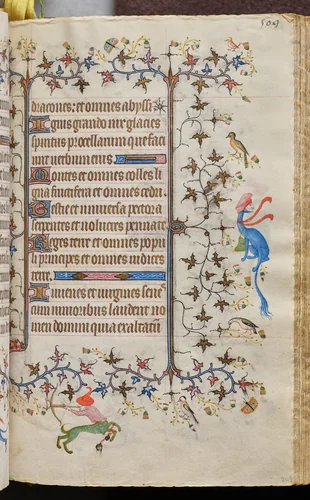 dracones: et omnes abyssi.
Ignis grando nix glacies
spiritus procellarum que faci
unt verbum eius.
Montes et omnes colles li
gna fructifera et omnes cedri.
Bestie et universa pecora
serpentes et volucres pennate.
Reges terre et omnes popu
li principes et omnes iudices
terre.
Iuvenes et virgines senes
cum iunioribus laudent no
men domini quia exaltatum